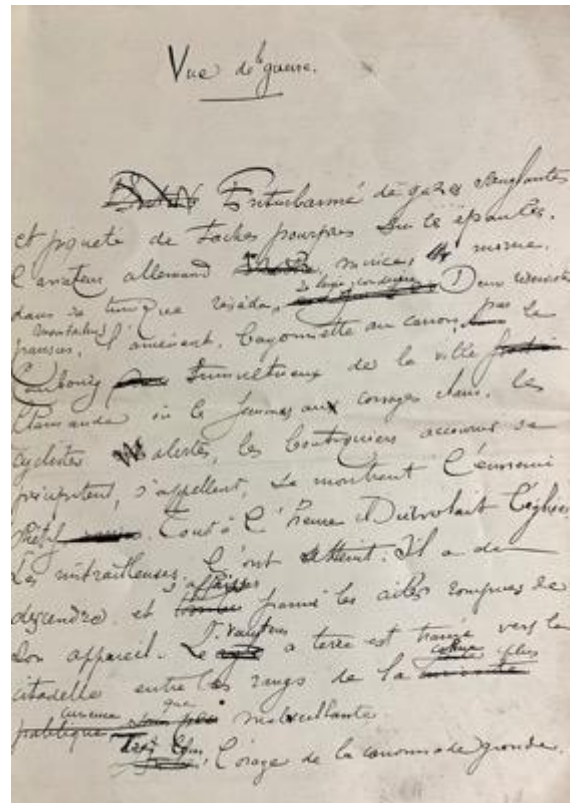 Vue de la guerre.
Enturbanné de gazes sanglantes
et piqueté de taches pourpres sur les épaules,
l'aviateur allemand, morne,
dans sa tunique réséda, Deux
français, l'amènent, bayonnette au canon, par le
faubourg tumultueux de la ville
flamande où les femmes aux corsages clairs, les
cyclistes alertes, les boutiquiers accourus se
précipitent, s'appellent, se montrent l'ennemi
Tout à l'heure il survolait l'église.
Les mitrailleuses l'ont atteint. Il a dû
descendre et parmi les ailes rompues de
son appareil. Le à terre est traîné vers la
citadelle entre les rangs de la plus
que malveillante
Très loin, l'orage de la canonnade gronde.